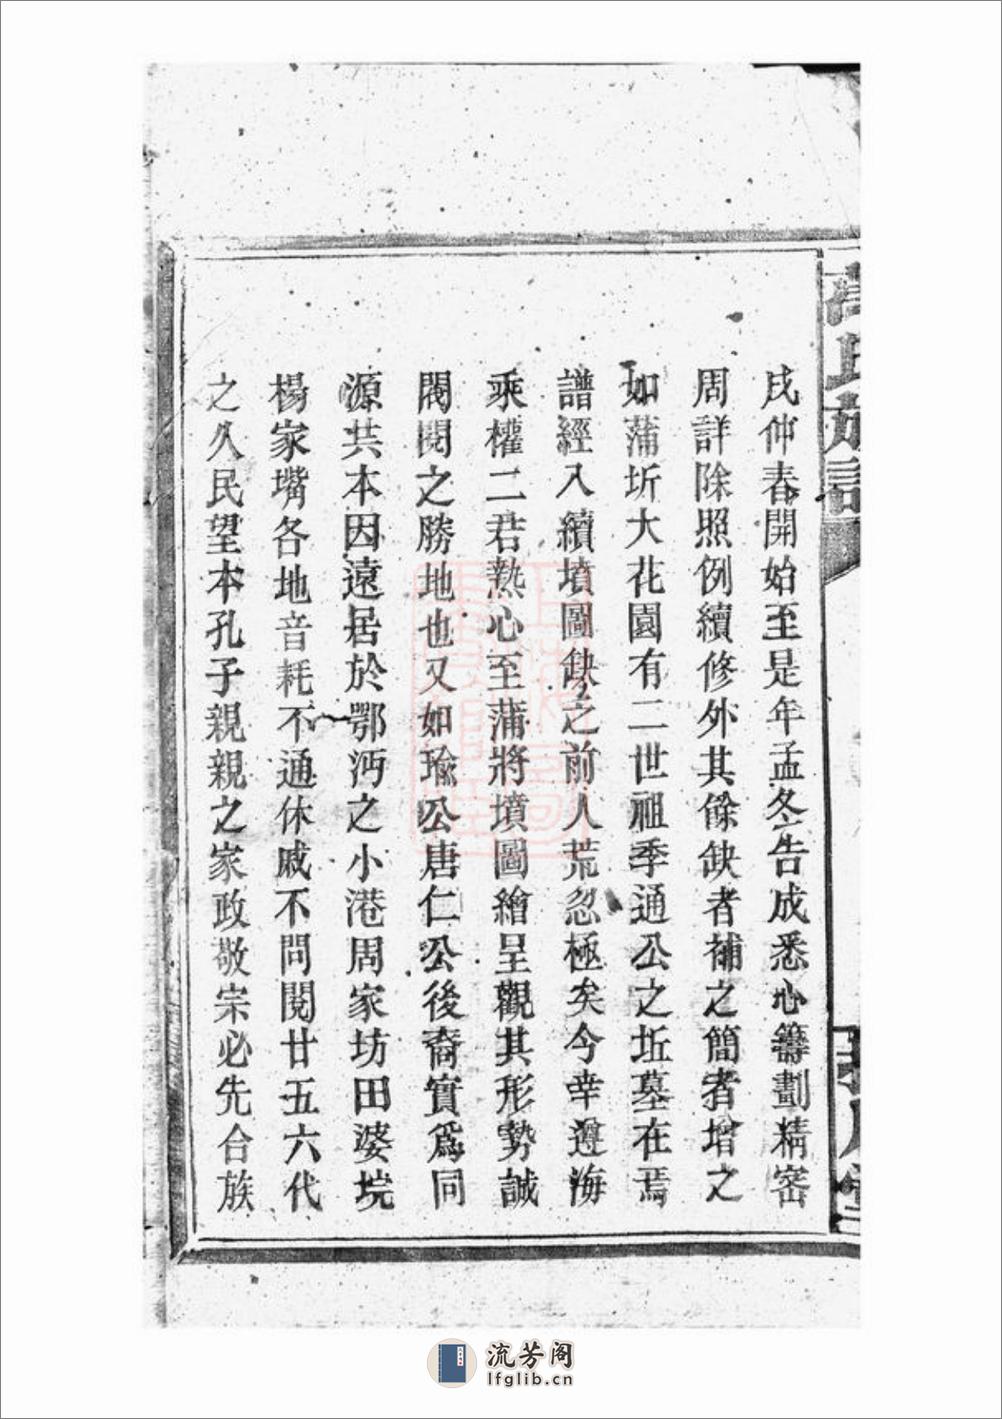 戌仲春開始至是年孟冬告成悉心籌劃精密
周詳除照例續修外其餘缺者補之簡者增之
如蒲圻大花園有二世祖季通公之坵墓在焉
譜經入續墳圖缺之前人荒忽極矣今幸遵海
乘權二君熱心至蒲將墳圖繪呈觀其形勢誠
閥閱之勝地也又如瑜公唐仁公後裔實爲同
源共本因遠居於鄂沔之小港周家坊田婆垸
楊家嘴各地音耗不通休戚不問閱廿五六代
之久民望本孔子親親之家政敬宗必先合族
流芳阁
lfglib.cn